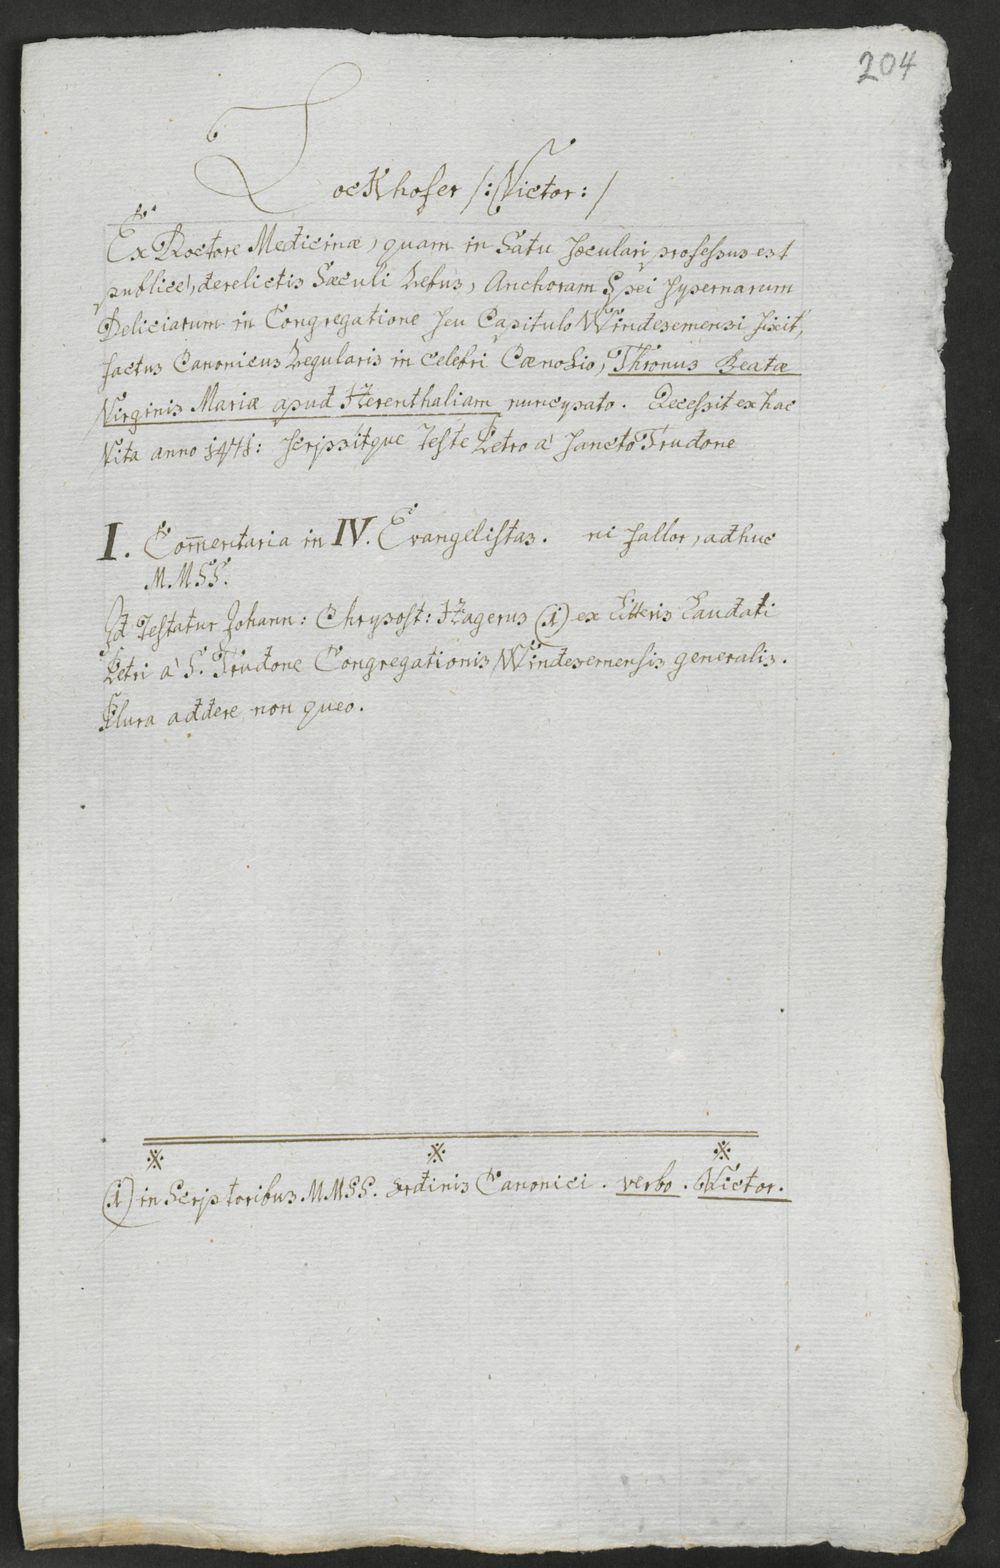 204
LocKhofer /: Victor: /
Ex Doctore Medicinæ, quam in Satu Sæculari professus est
publicè, derelictis Sæculi Rebus, Anchoram Spei Spernarum
Deliciarum in Congregatione seu Capitulo Windesemensi fixit,
factus Canonicus Regularis in celebri Cænobio, Thronus Beatæ
Virginis Mariæ apud Herenthaliam nuncupato. Decessit ex hac
Vita anno 1471: scripsitque Teste Petro à Sancto Trudone
I. Com̄entaria in IV. Evangelistas. ni fallor, adhuc
M.MSS.
Id Testatur Johann: Chrysost: Hagerus (1) ex Litteris Laudati
Petri à S. Trudone Congregationis Windesemensis generalis.
Plura addere non queo.
(1) in Scriptoribus M.MSS. Ordinis Canonici. verbo. Victor.